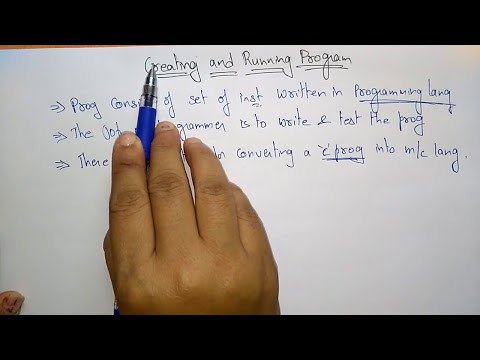 Creating and Running Program
⇒ Prog consist of set of inst written in Programming lang
⇒ The Job programmer is to write & test the prog
⇒ There for converting a 'c' prog into m/c lang.